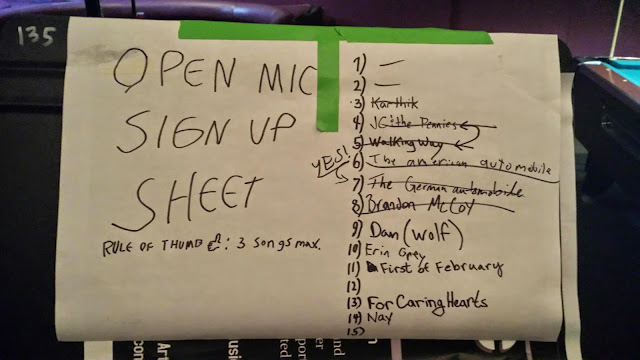 135
OPEN MIC
SIGN UP
SHEET
RULE OF THUMB: 3 songs max.
1) —
2) —
3) Karthik
4) JG & the Pennies
5) Walking Way
YES!
6) The american automobile
7) The German automobile
8) Brandon McCoy
9) Dan (Wolf)
10) Erin Grey
11) First of February
12)
13) For Caring Hearts
14) Nay
15)